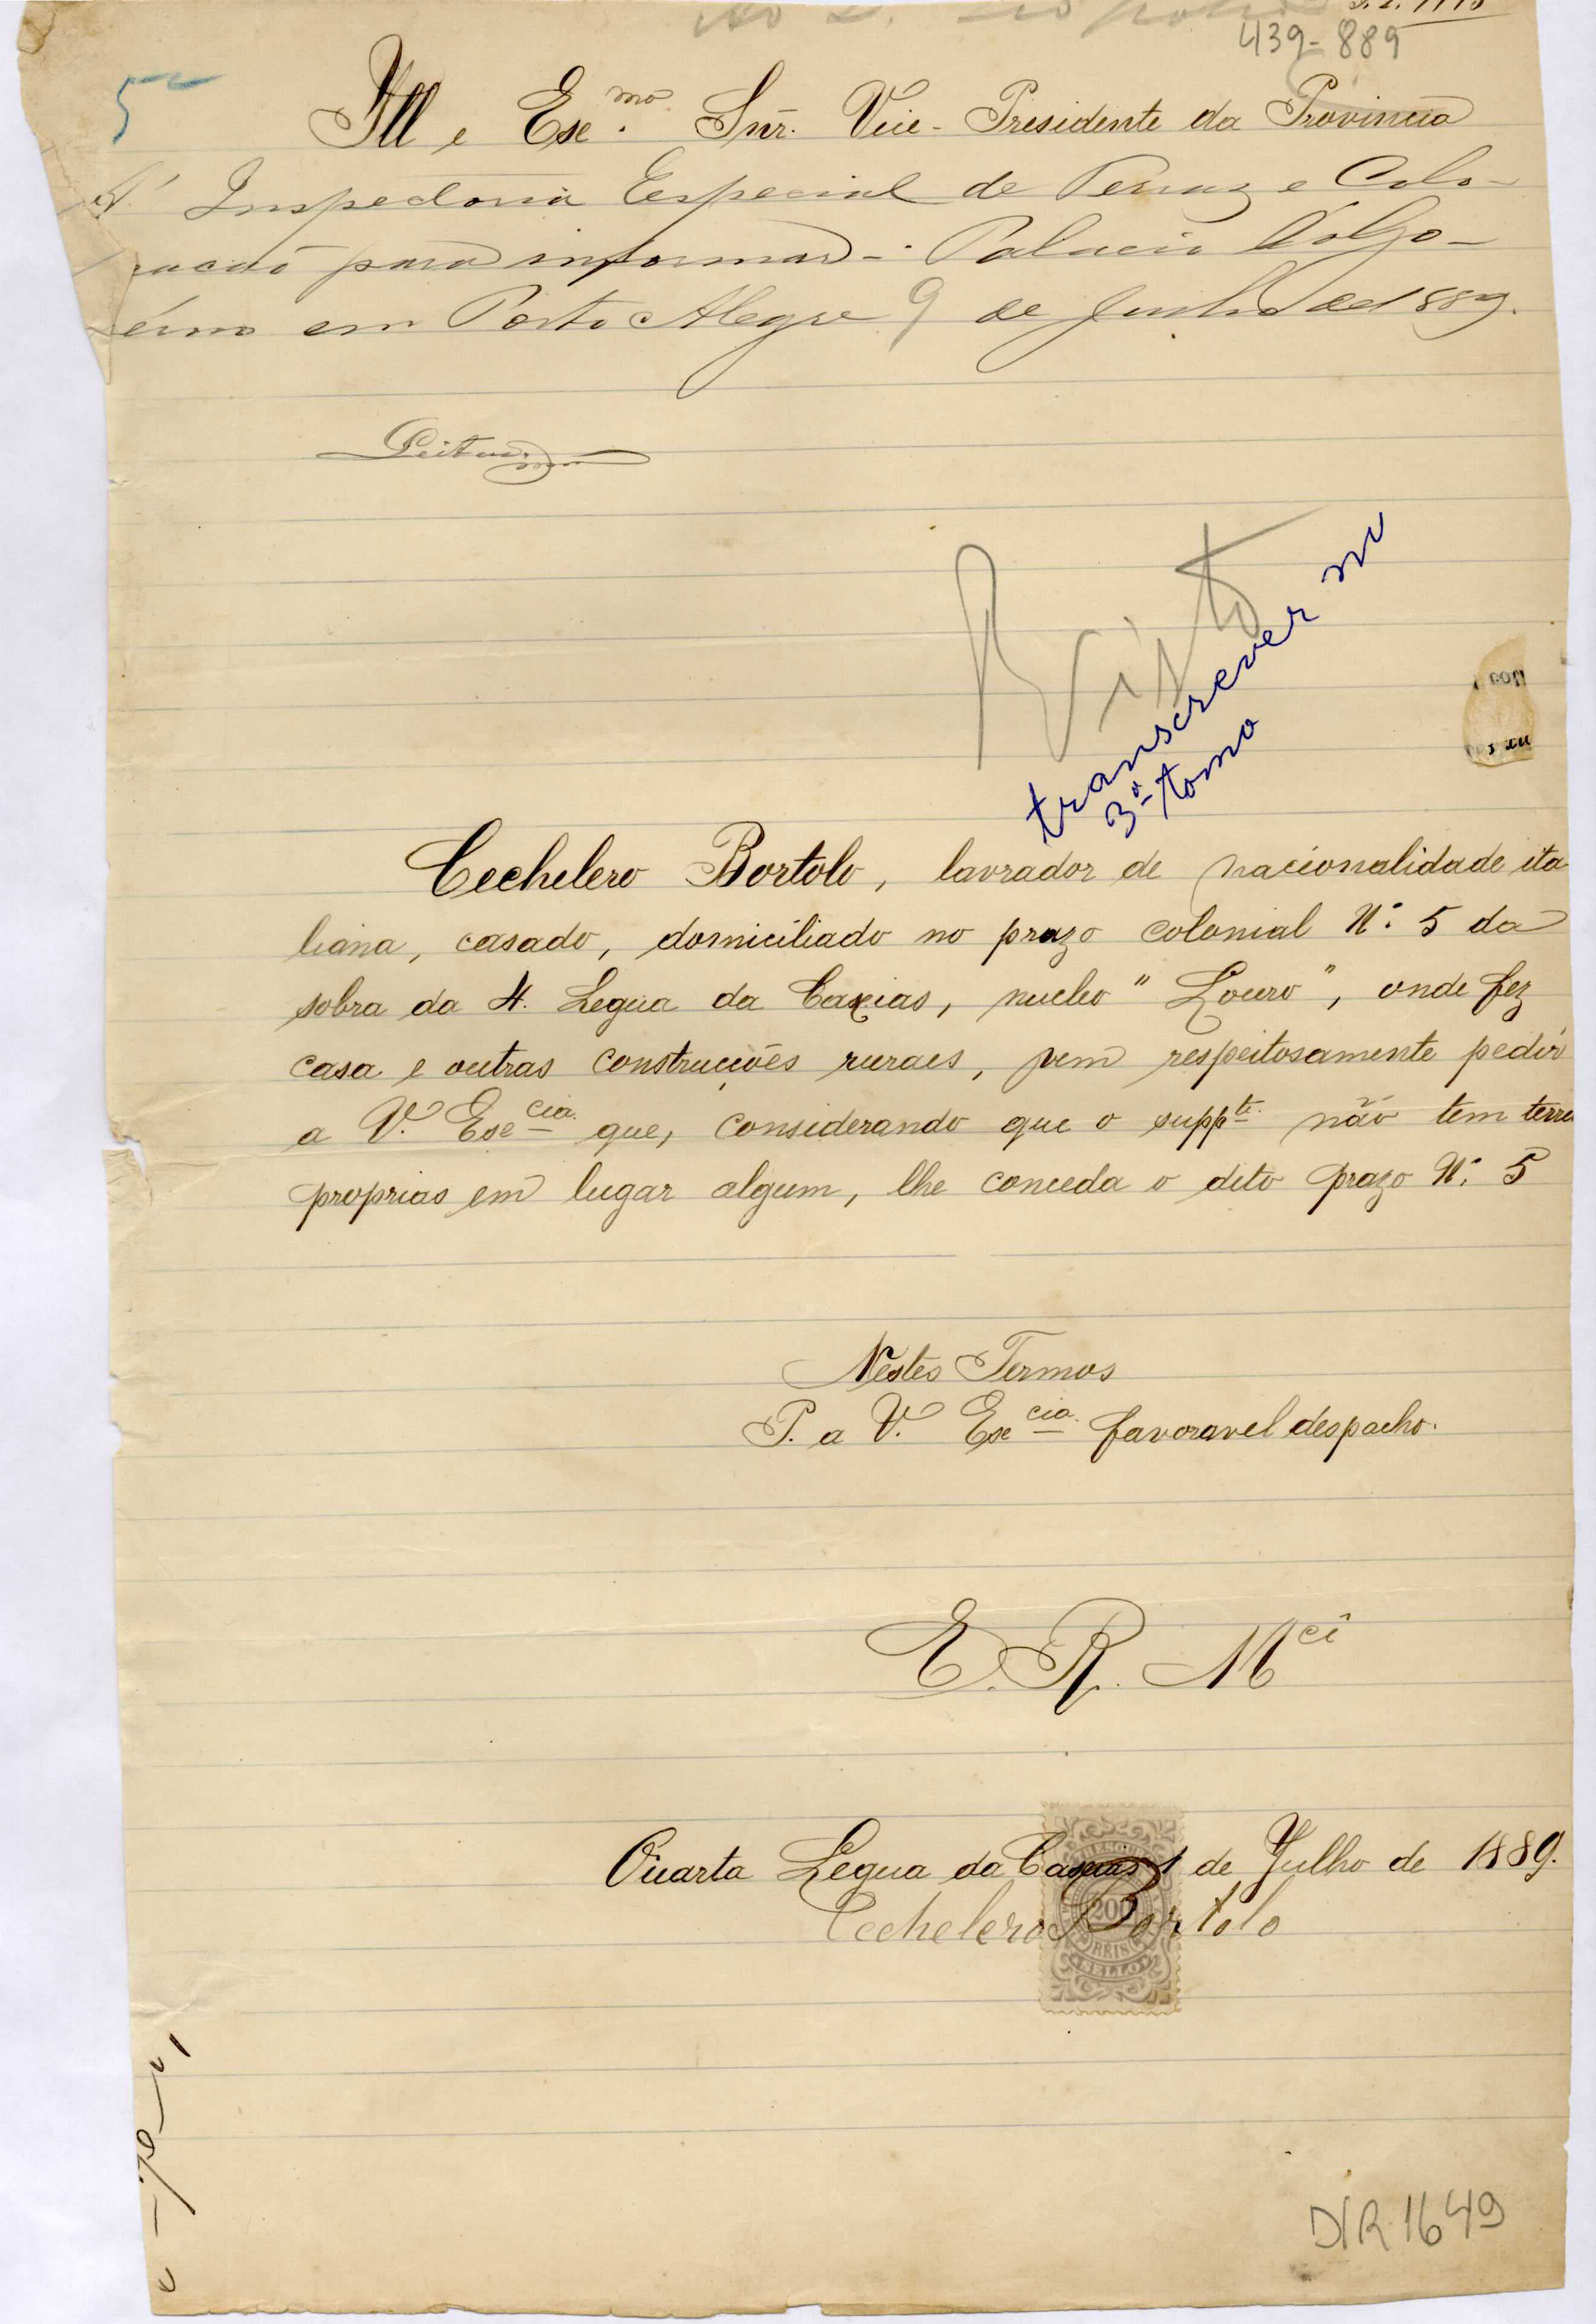 439-889
5
Ill e Exc.mo Snr. Vice-Presidente da Provincia
Á Inspectoria Especial de Terras e Colo-
nisação para informar. Palacio do Go-
verno em Porto Alegre 9 de Julho de 1889.
Visto
transcrever no
3º tomo
Cechelero Bortolo, lavrador de nacionalidade ita
liana, casado, domiciliado no prazo colonial N.º 5 da
sobra da 4. Legua da Caxias, nucleo "Louro", onde fez
casa e outras construcções ruraes, vem respeitosamente pedir
a V. Exc.cia que, considerando que o supp.te não tem terras
proprias em lugar algum, lhe conceda o dito prazo N.º 5
Nestes Termos
P. a V. Exc.cia favoravel despacho.
E. R. M.cê
Quarta Legua da Caxias 1 de Julho de 1889.
Cechelero Bortolo
200
REIS
SELLO
DIR 1649